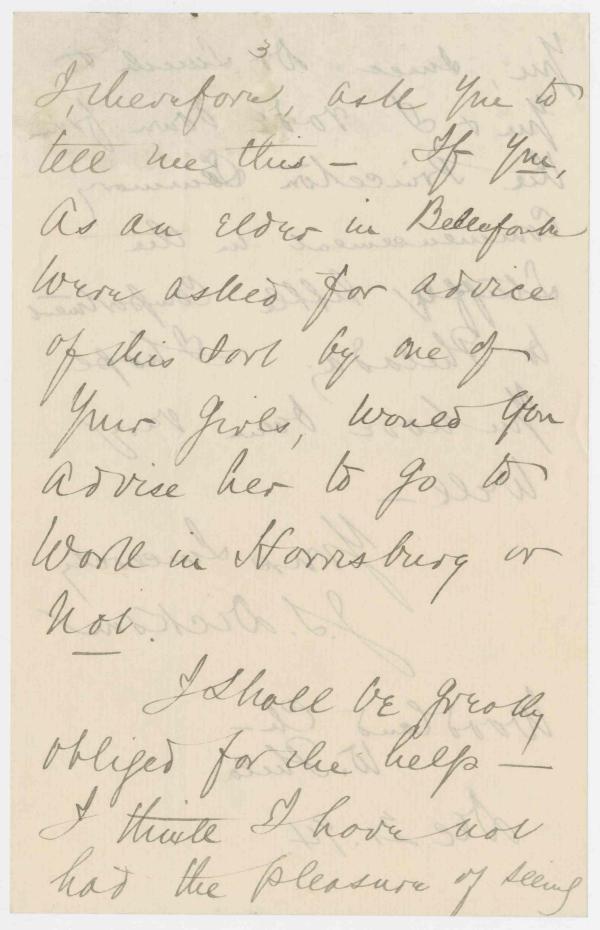 3
I, therefore, ask you to
tell me this – If you,
as an Elder in Bellefonte
were asked for advice
of this sort by one of
your girls, would you
advise her to go to
work in Harrisburg or
not.
I shall be greatly
obliged for the help –
I think I have not
had the pleasure of seeing